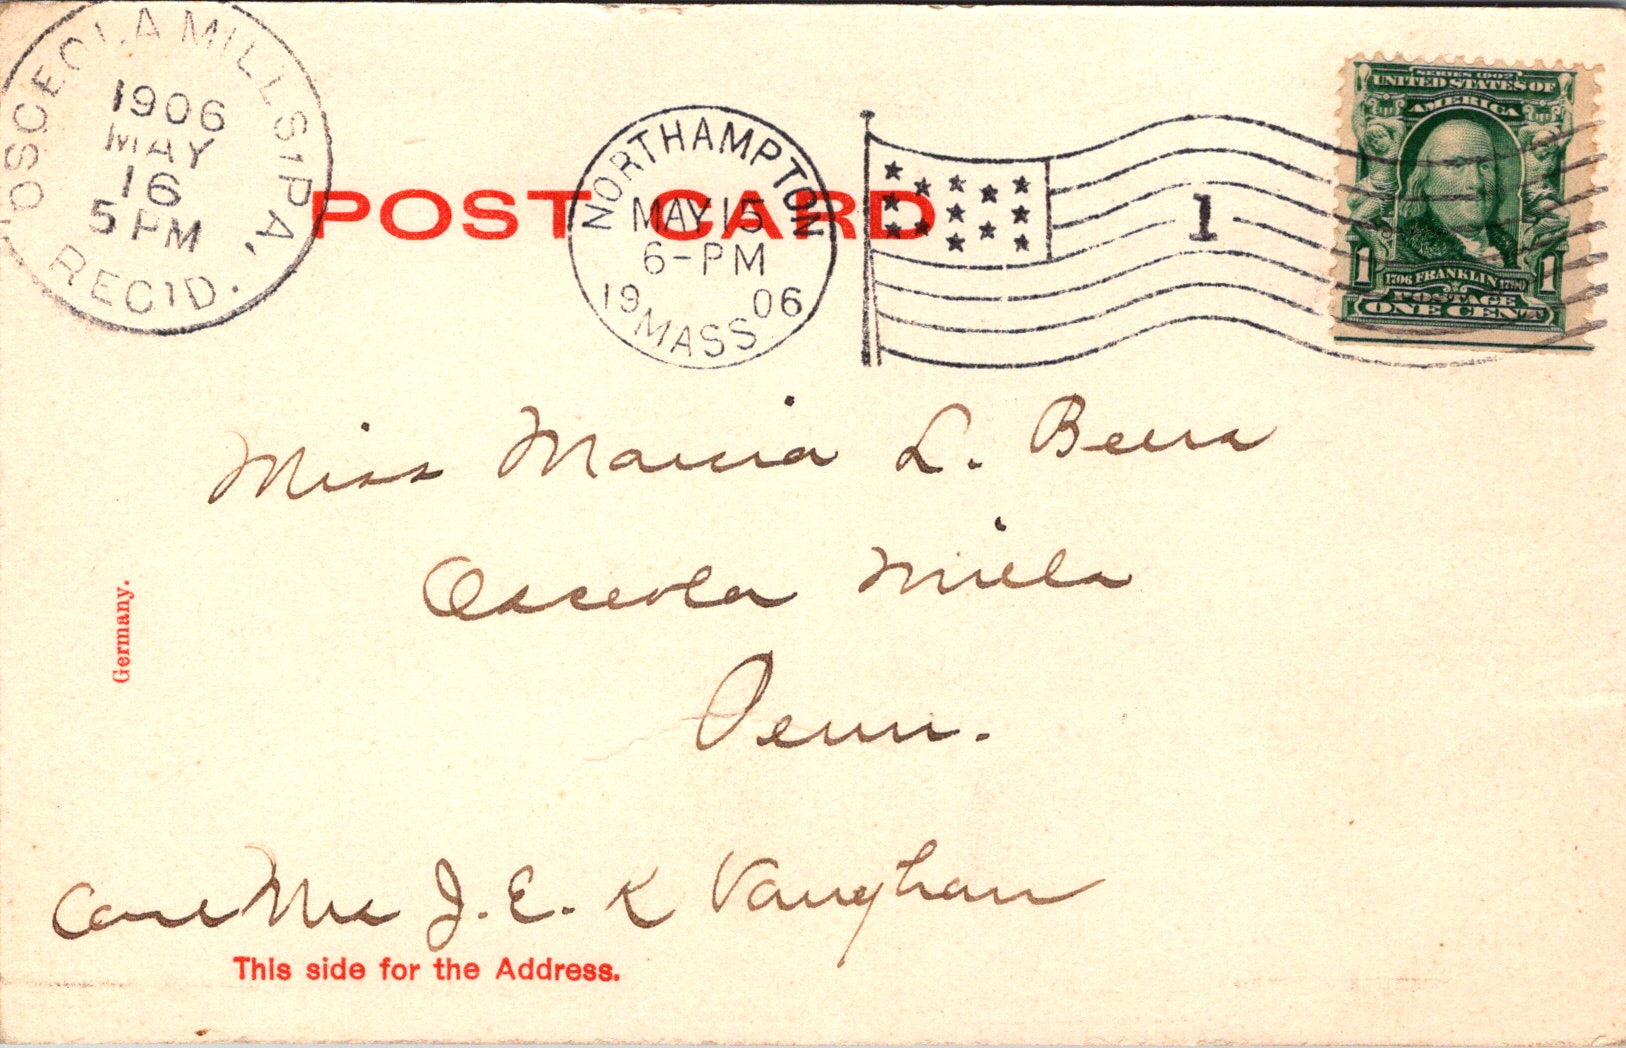 OSCEOLA MILLS, PA.
1906
MAY
16
5 PM
REC'D.
POST CARD
NORTHAMPTON
MAY 15
6-PM
19 06
MASS
1
SERIES 1902
UNITED STATES OF
AMERICA
1 1706 FRANKLIN 1790 1
POSTAGE
ONE CENT
Miss Marcia L. Beers
Osceola Mills
Penn.
Germany.
Care Mrs J. E. K Vaughan
This side for the Address.